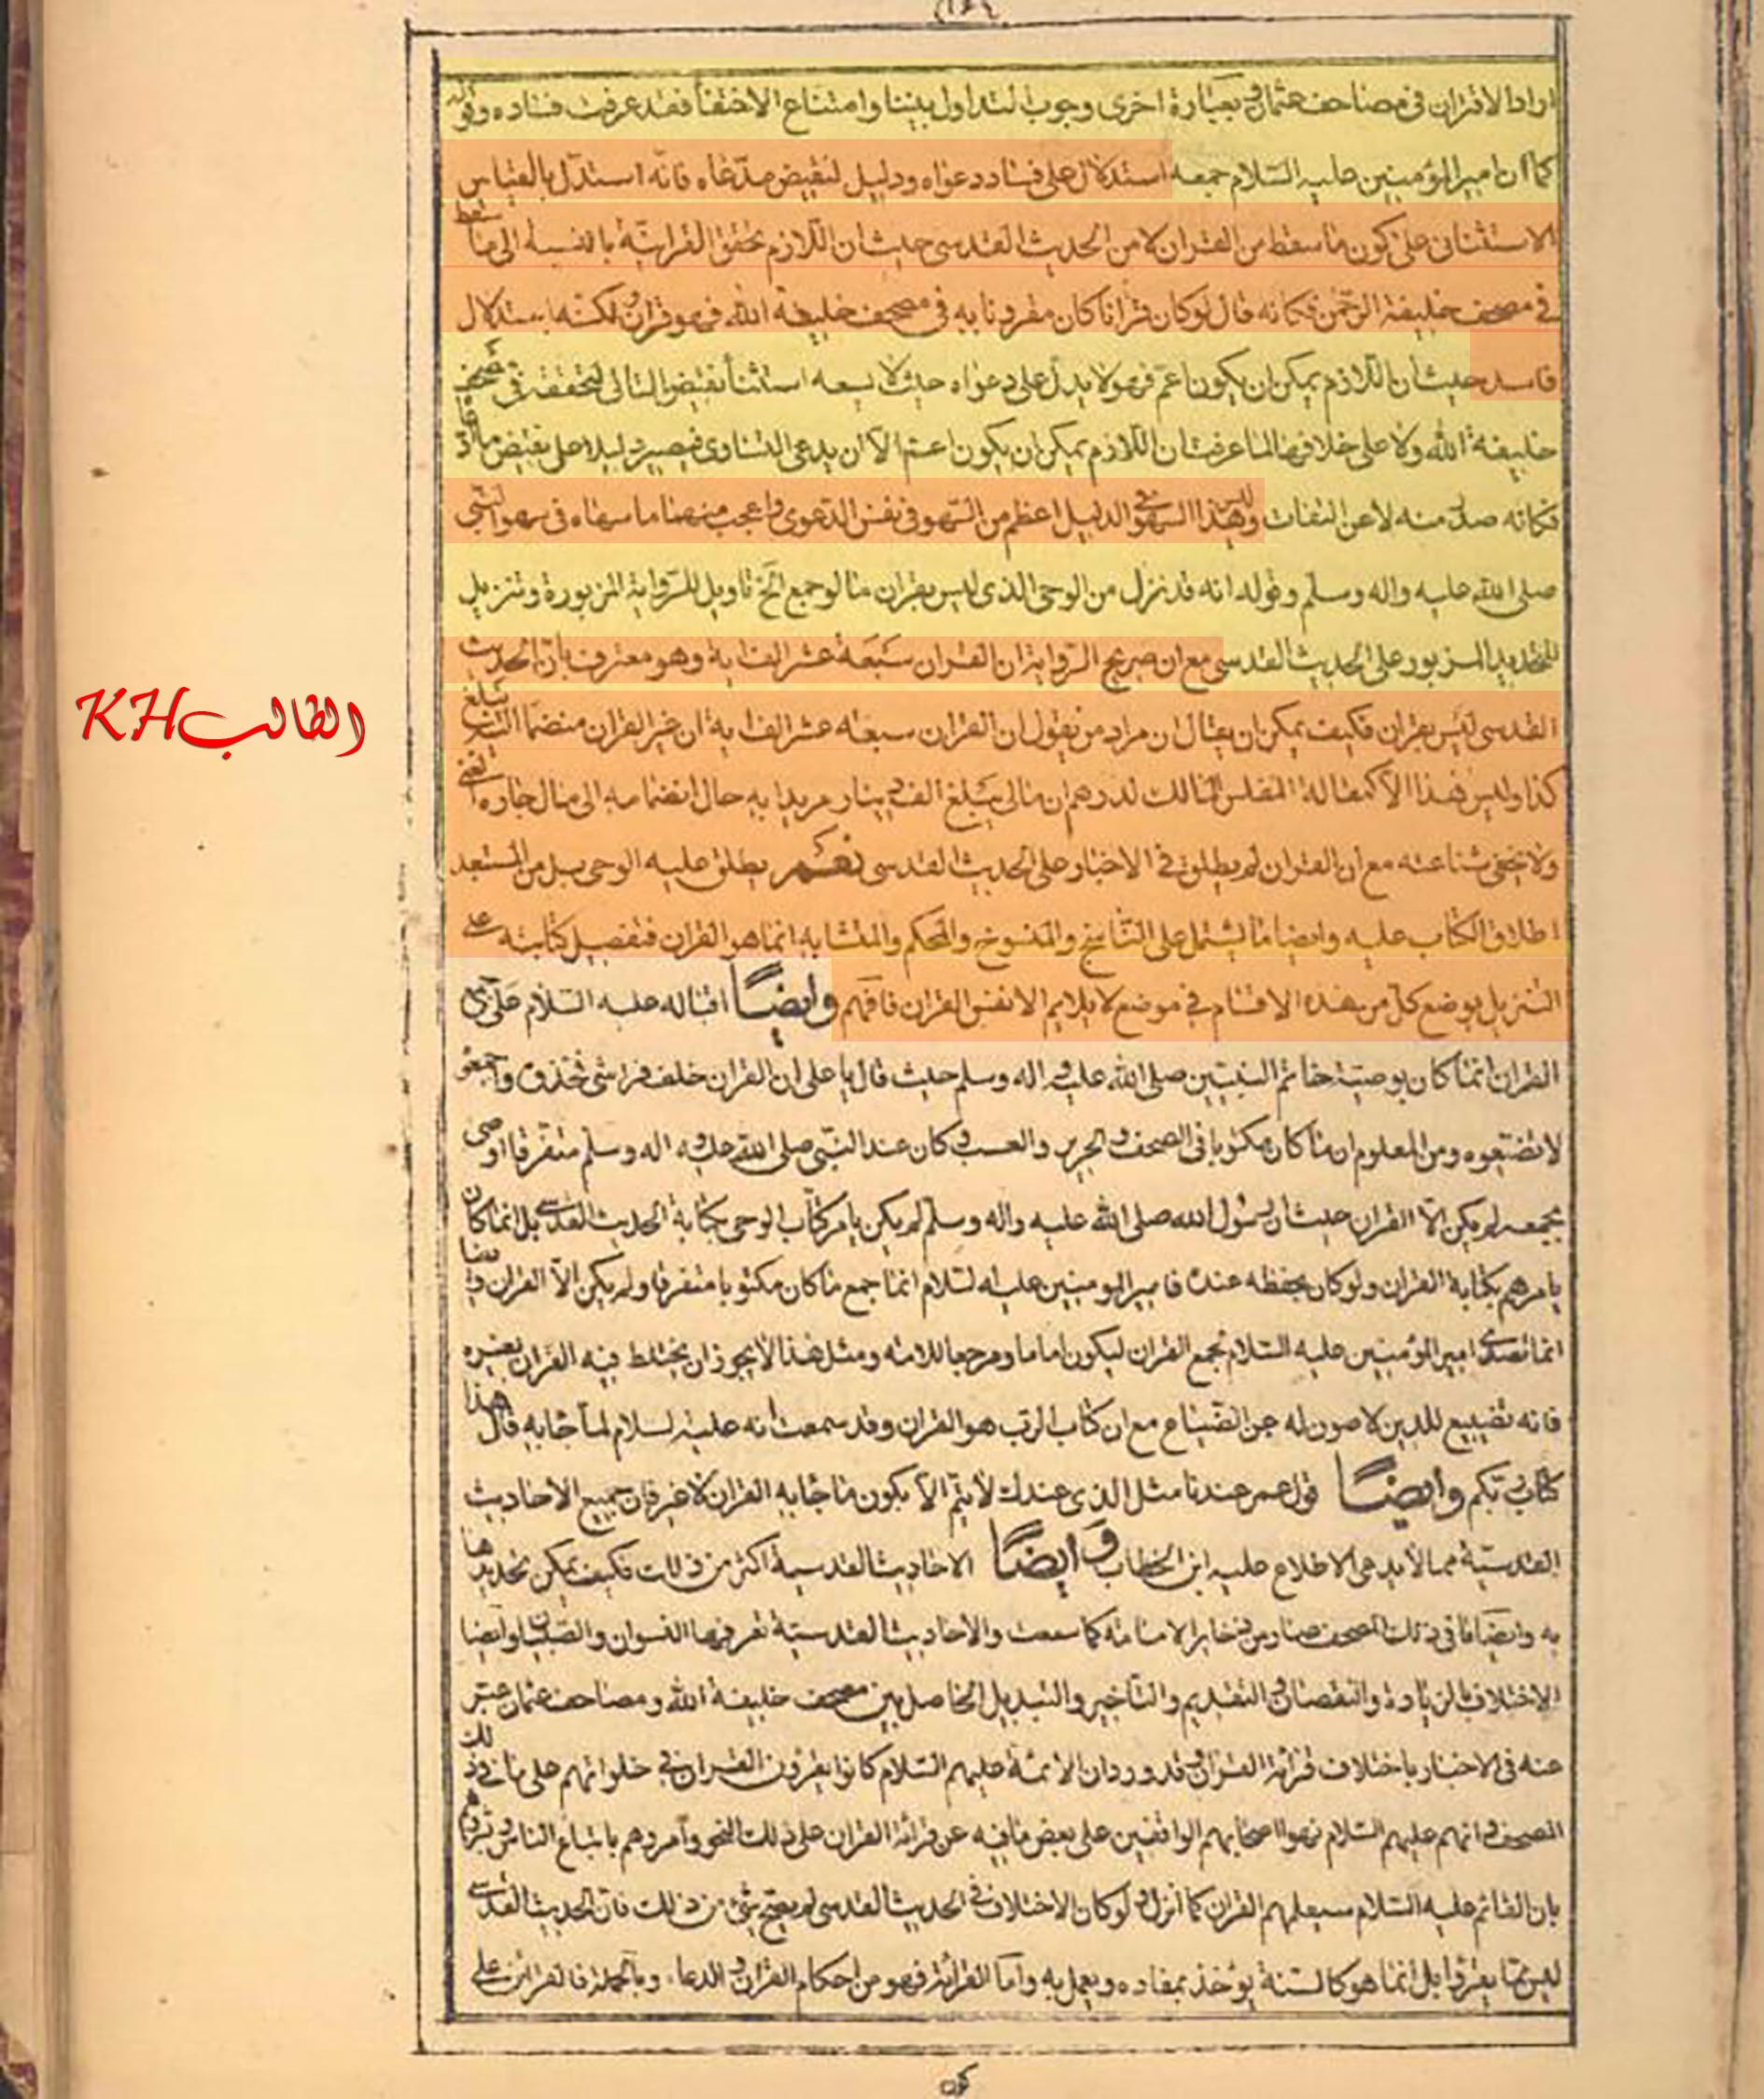 اراد الاقتران فی مصاحف عثمان و بعبارة اخری وجوب لتداول بیننا و امتناع الاختفأ فقد عرفت فساده و قوله
کما ان امیر المؤمنین علیه السّلام جمعه استدلال علی فساد دعواه و دلیل لنقیض مدّعاه فانّه استدلّ بالقیاس
الاستثنائی علی کون ما سقط من القران لا من الحدیث القدسی حیث ان اللازم تحقق القرانیّة بالنسبة الی ما سقط
فی مصحف خلیفة الرّحمن فکانه قال لو کان قرانا کان مقرونا به فی مصحف خلیفة الله فهو قران و لکنّه استدلال
فاسد حیث ان اللازم یمکن ان یکون اعمّ فهو لا یدلّ علی دعواه حیث لا یسعه استثنأ نقیض التالی لتحققه فی مصحف
خلیفة الله ولا علی خلافها لما عرفت ان اللازم یمکن ان یکون اعمّ الّا ان یدعی التساوی فیصیر دلیلا علی نقیض
فکانّه صدر منه لا عن التفات و هذا السهو فی الدلیل اعظم من السّهو فی نفس الدعوی و اعجب منهما ما سهاه فی سهو النّبی
صلی الله علیه واله وسلم و قوله انه قد نزل من الوحی الذی لیس بقران ما لو جمع الخ تاویل للرّوایة المزبورة و تنزیل
للتحدید المزبور علی الحدیث القدسی مع ان صریح الرّوایة ان القران سبعة عشر الف ایة و هو معترف بان الحدیث
القدسی لیس بقران فکیف یمکن ان یقال ان مراد من یقول ان القران سبعة عشر الف ایة ان غیر القران منضمّا الیه یبلغ
کذا و لیس هذا الّا کمقالة المفلس المالک لدرهم ان مالی یبلغ الف دینار مریدا به حال انضمامه الی مال جاره الغنی
ولا یخفی شناعته مع ان القران لم یطلق فی الاخبار علی الحدیث القدسی نعم یطلق علیه الوحی بل من المستبعد
اطلاق الکتاب علیه و ایضا ما یشتمل علی النّاسخ و المنسوخ و المحکم و المتشابه انما هو القران فتفصیل کتابته علی
التنزیل بوضع کلّ من هذه الاقسام فی موضع لا یلایم الا نفس القران فافهم وایضًا اقباله علیه السّلام علی جمع
القران انّما کان بوصیّة خاتم النبیّین صلی الله علیه و اله وسلم حیث قال یا علی ان القران خلف فراشی فخذوه واجمعو
لا تضیّعوه و من المعلوم ان ما کان مکتوبا فی الصحف و الحریر و العسب و کان عند النّبی صلی الله علیه و اله وسلم متفرقا اوصی
بجمعه لم یکن الّا القران حیث ان رسول الله صلی الله علیه واله وسلّم لم یکن یامر کتّاب الوحی بکتابة الحدیث القدسی بل انما کان
یامرهم بکتابة القران و لو کان یحفظه عنده فامیر المومنین علیه السلام انّما جمع ما کان مکتوبا متفرقا و لم یکن الّا القران وایضا
انما تصدّی امیر المؤمنین علیه السّلام لجمع القران لیکون اماما و مرجعا للامّة و مثل هذا لا یجوز ان یختلط فیه القران بغیره
فانه تضییع للدین لا صون له عن الضّیاع مع ان کتاب الرب هو القران و قد سمعت انه علیه السلام لمّا جاء به قال هذا
کتاب ربّکم وایضًا قول عمر عندنا مثل الذی عندک لا یتم الّا بکون ما جاء به القران لا غیر فان جمیع الاحادیث
القدسیّة مما لا یدعی الاطلاع علیه ابن الخطاب وَ ایضًا الاحادیث القدسیة اکثر من ذلک فکیف یمکن تحدیدها
به وایضا ما فی ذلک المصحف صار من ذخایر الامامة کما سمعت و الاحادیث القدسیّة تعرفها النسوان و الصّبیان و ایضا
الاختلاف بالزیادة و النقصان و التقدیم و التاخیر و التبدیل الحاصل بین مصحف خلیفة الله و مصاحف عثمان عبّر
عنه فی الاخبار باختلاف قرائة القران و قد ورد ان الائمة علیهم السّلام کانوا یقرؤن القران فی خلواتهم علی ما فی ذلک
المصحف و انهم علیهم السّلام نهوا اصحابهم الواقفین علی بعض ما فیه عن قرائة القران علی ذلک النحو و امروهم باتباع الناس
بان القائم علیه السّلام سیعلمهم القران کما انزل و لو کان الاختلاف فی الحدیث القدسی لم یصحّ شئ من ذلک فان الحدیث القدسی
لیس مما یقرؤ بل انما هو کالسنّة یؤخذ بمفاده و یعمل به و امّا القرائة فهو من احکام القران و الدعاء و بالجملة فالقرائن علی
کون
الطالب KH